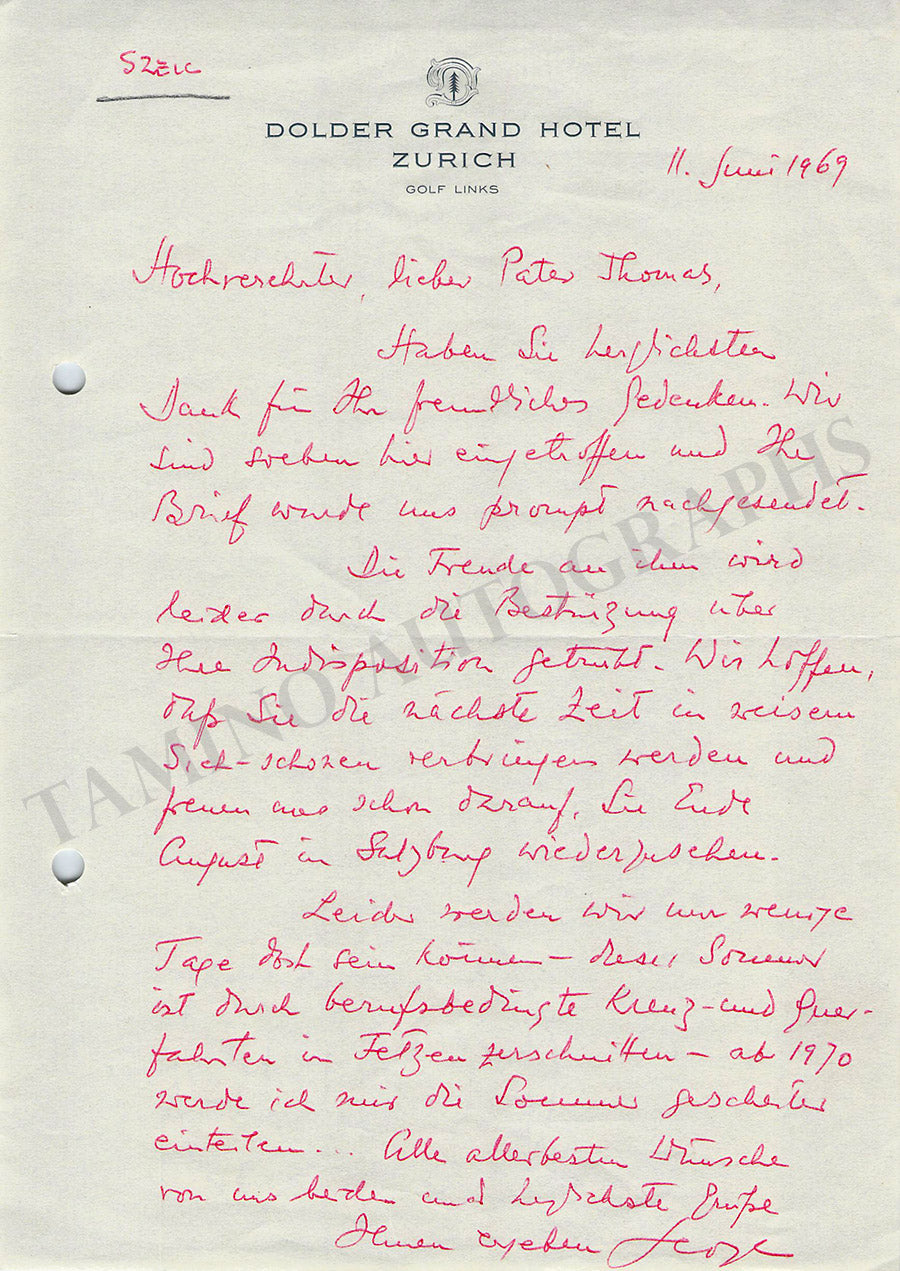 SZELL
DOLDER GRAND HOTEL
ZURICH
GOLF LINKS
11. Juni 1969
Hochverehrter, lieber Pater Thomas,
Haben Sie herzlichsten
Dank für Ihr freundliches Gedenken. Wir
sind soeben hier eingetroffen und Ihr
Brief wurde uns prompt nachgesendet.
Die Freude an ihm wird
leider durch die Bestürzung über
Ihre Indisposition getrübt. Wir hoffen,
daß Sie die nächste Zeit in weisem
Sich-schonen verbringen werden und
freuen uns schon darauf, Sie Ende
August in Salzburg wiederzusehen.
Leider werden wir nur wenige
Tage dort sein können – dieser Sommer
ist durch berufsbedingte Kreuz- und Quer-
fahrten in Fetzen zerschnitten – ab 1970
werde ich mir die Sommer gescheiter
einteilen... Alle allerbesten Wünsche
von uns beiden und herzlichste Grüße
Ihnen ergeben
TAMINO AUTOGRAPHS